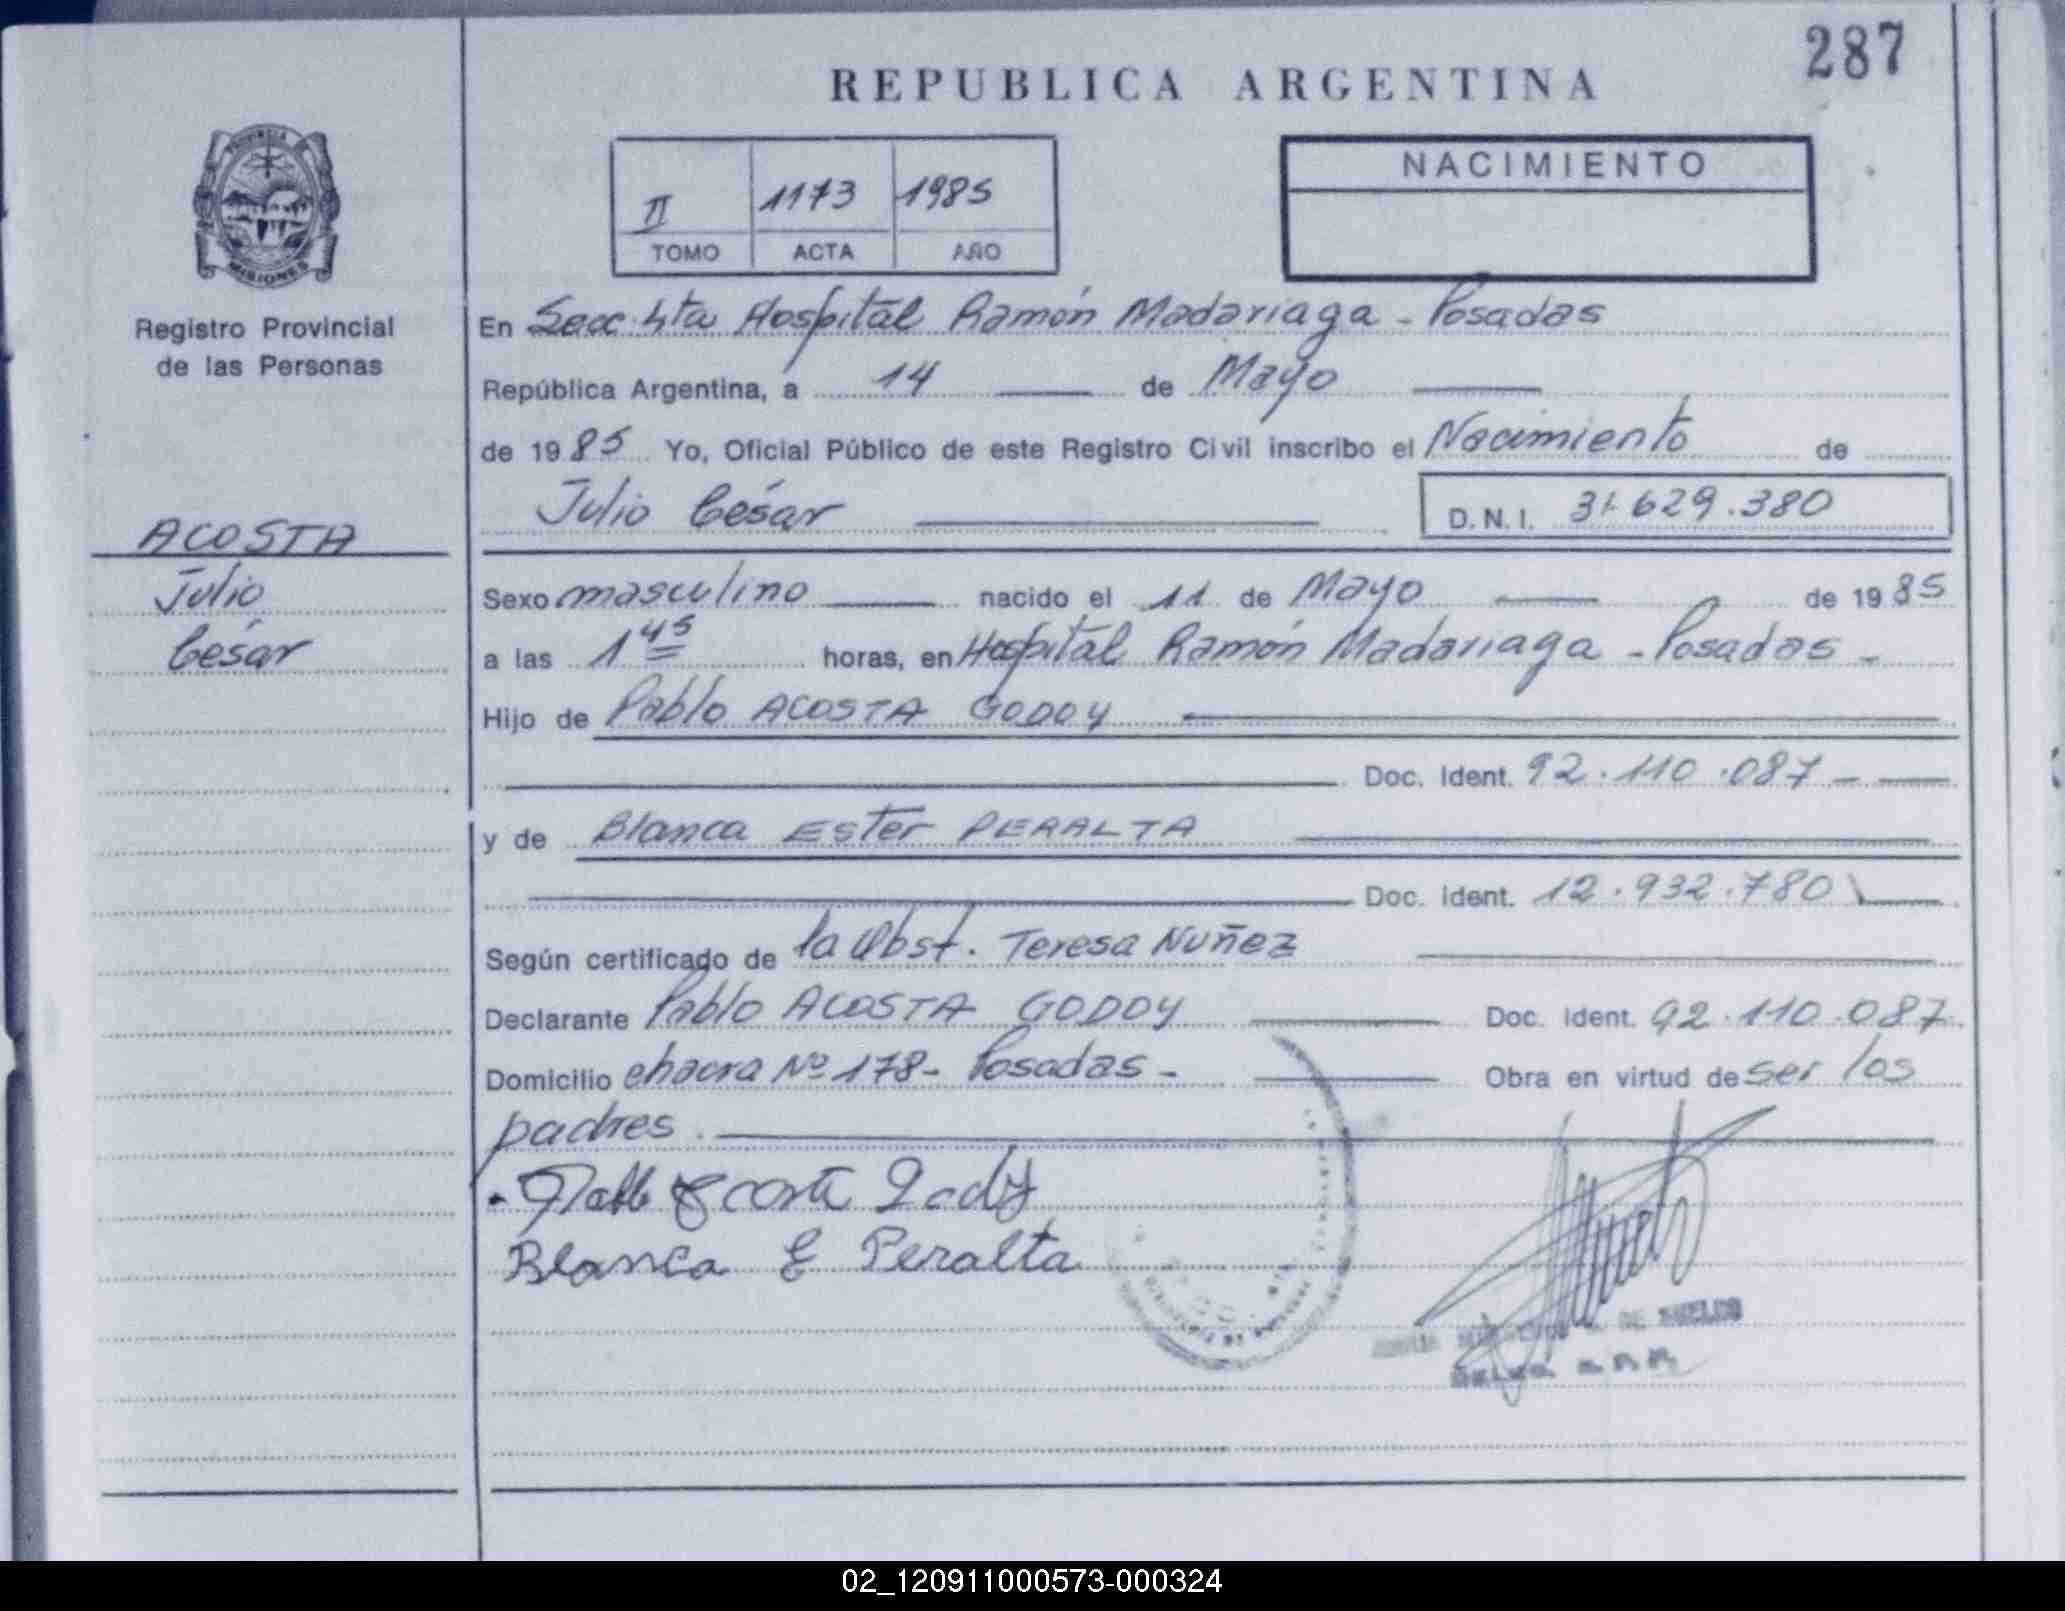 287
REPUBLICA ARGENTINA
PROVINCIA
MISIONES
Registro Provincial
de las Personas
II 1173 1985
TOMO ACTA AÑO
NACIMIENTO
En Secc 4ta Hospital Ramón Madariaga - Posadas
República Argentina, a 14 de Mayo
de 1985 Yo, Oficial Público de este Registro Civil inscribo el Nacimiento de
Julio César D.N.I. 31.629.380
ACOSTA
Julio
César
Sexo masculino nacido el 11 de Mayo de 1985
a las 1 45 horas, en Hospital Ramón Madariaga - Posadas -
Hijo de Pablo ACOSTA GODOY
Doc. Ident. 92.110.087 -
y de Blanca Ester PERALTA
Doc. Ident. 12.932.780
Según certificado de la Obst. Teresa Nuñez
Declarante Pablo ACOSTA GODOY Doc. Ident. 92.110.087
Domicilio chacra Nº 178 - Posadas - Obra en virtud de ser los
padres.
Pablo Acosta Godoy
Blanca E Peralta
DE
02_120911000573-000324